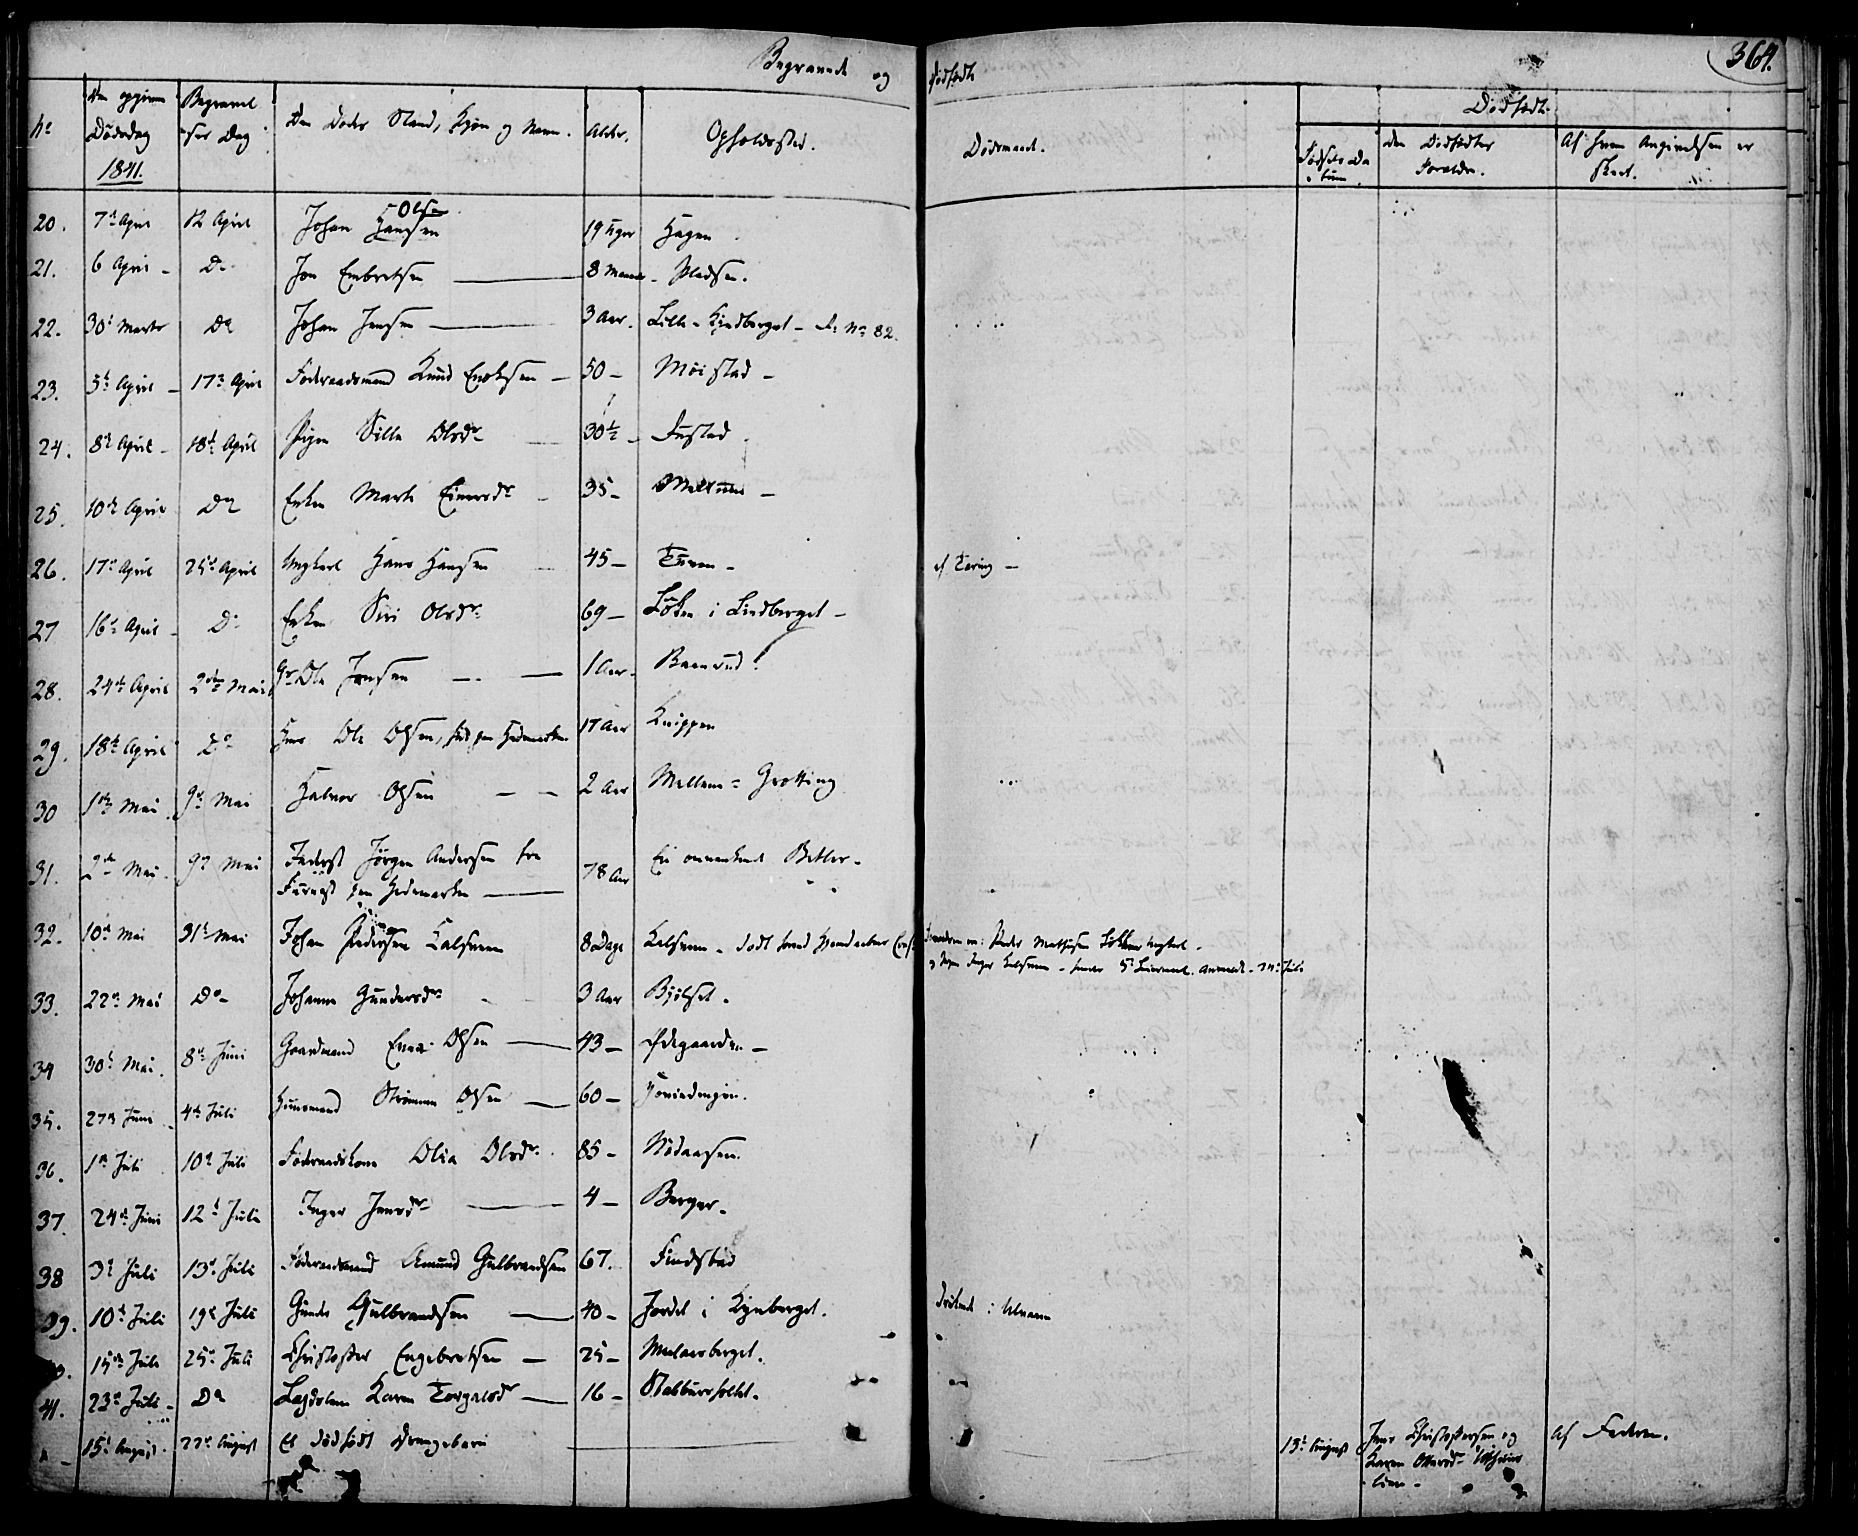 Begravede og Dødfødte
364.
No
Den opgivne Dødsdag 1841.
Begravelses Dag
Den Dødes Stand, Kjøn og Navn.
Alder.
Opholdssted.
Dødsmaade.
Dødfødte.
Fødsels Datum
den Dødfødtes Forældre.
Af hvem Angivelsen er skeet.
20. 7de April 12 April Johan Hansen Olsen 19 Uger Hagen
21. 6 April - Do Jon Embretsen 8 Maaneder - Pladsen.
22. 30te Marts Do Johan Jensen 3 Aar. Lille-Kindberget - F. No 82.
23. 5te April - 17de April Føderaadsmand Knud Enoksen - 50 - Moistad -
24. 8de April - 18de April Pigen Sille Olsdr 30½ - Fustad
25. 10de April Do Enken Marte Einersdr - 35 -
26. 17de April 25de April Ungkarl Hans Hansen 45 - Tuven - af Tæring -
27 16de April - Do Enken Siri Olsdr 69 - Løken i Lindberget -
28. 24de April 2den Mai Ole Jensen 1 Aar. Baarud
29. 18de April Do Ole Olsen, fød paa Hedemarken 17 Aar Knippen
30 1ste Mai. 9de Mai Halvor Olsen 2 Aar Mellem-Grøtting
31. 2den Mai. 9de Mai Inderst Jørgen Andersen fra
Furnæs paa Hedemarken 78 Aar En omvankende Betler.
32. 10de Mai 31te Mai Johan Pedersen Kalsveen 8 Dage Kalsveen - født
Forældrene ere: Peder Mathisen Løkken Ungkarl -
og Pigen Inger Kalsveen - hendes 5te Leiermaal. Anmeldt - 24de Juli
33. 22de Mai Do - Johanne Gundersdr 3 Aar Bjølset.
34 30te Mai. 8de Juni Gaardmand Einar Olsen 43 - Ødegaarden -
35. 27de Juni 4de Juli Huusmand Strømmen Olsen 60 -
36. 1ste Juli 10de Juli Føderaadskone Olia Olsdr 85 - Nødaasen.
37. 24de Juni 12te Juli Inger Jensdr 4 - Berger.
38 3de Juli 13de Juli Føderaadsmand Amund Gulbrandsen 67. Findstad
39. 10de Juli 19de Juli Gunder Gulbrandsen 40 - Jordet i Kynberget. druknede i Ulvaaen
15de Juli 25de Juli Christopher Engebretsen - 25 - Mælaasberget.
41. 23de Juli - Do Lægdslem Karen Torgalsdr 16 - Stabbursholtet.
15de August. 22de August Et dødfødt Drengebarn
13de August Jens Christophersen og
Karen Ottersdr
Af Faderen.